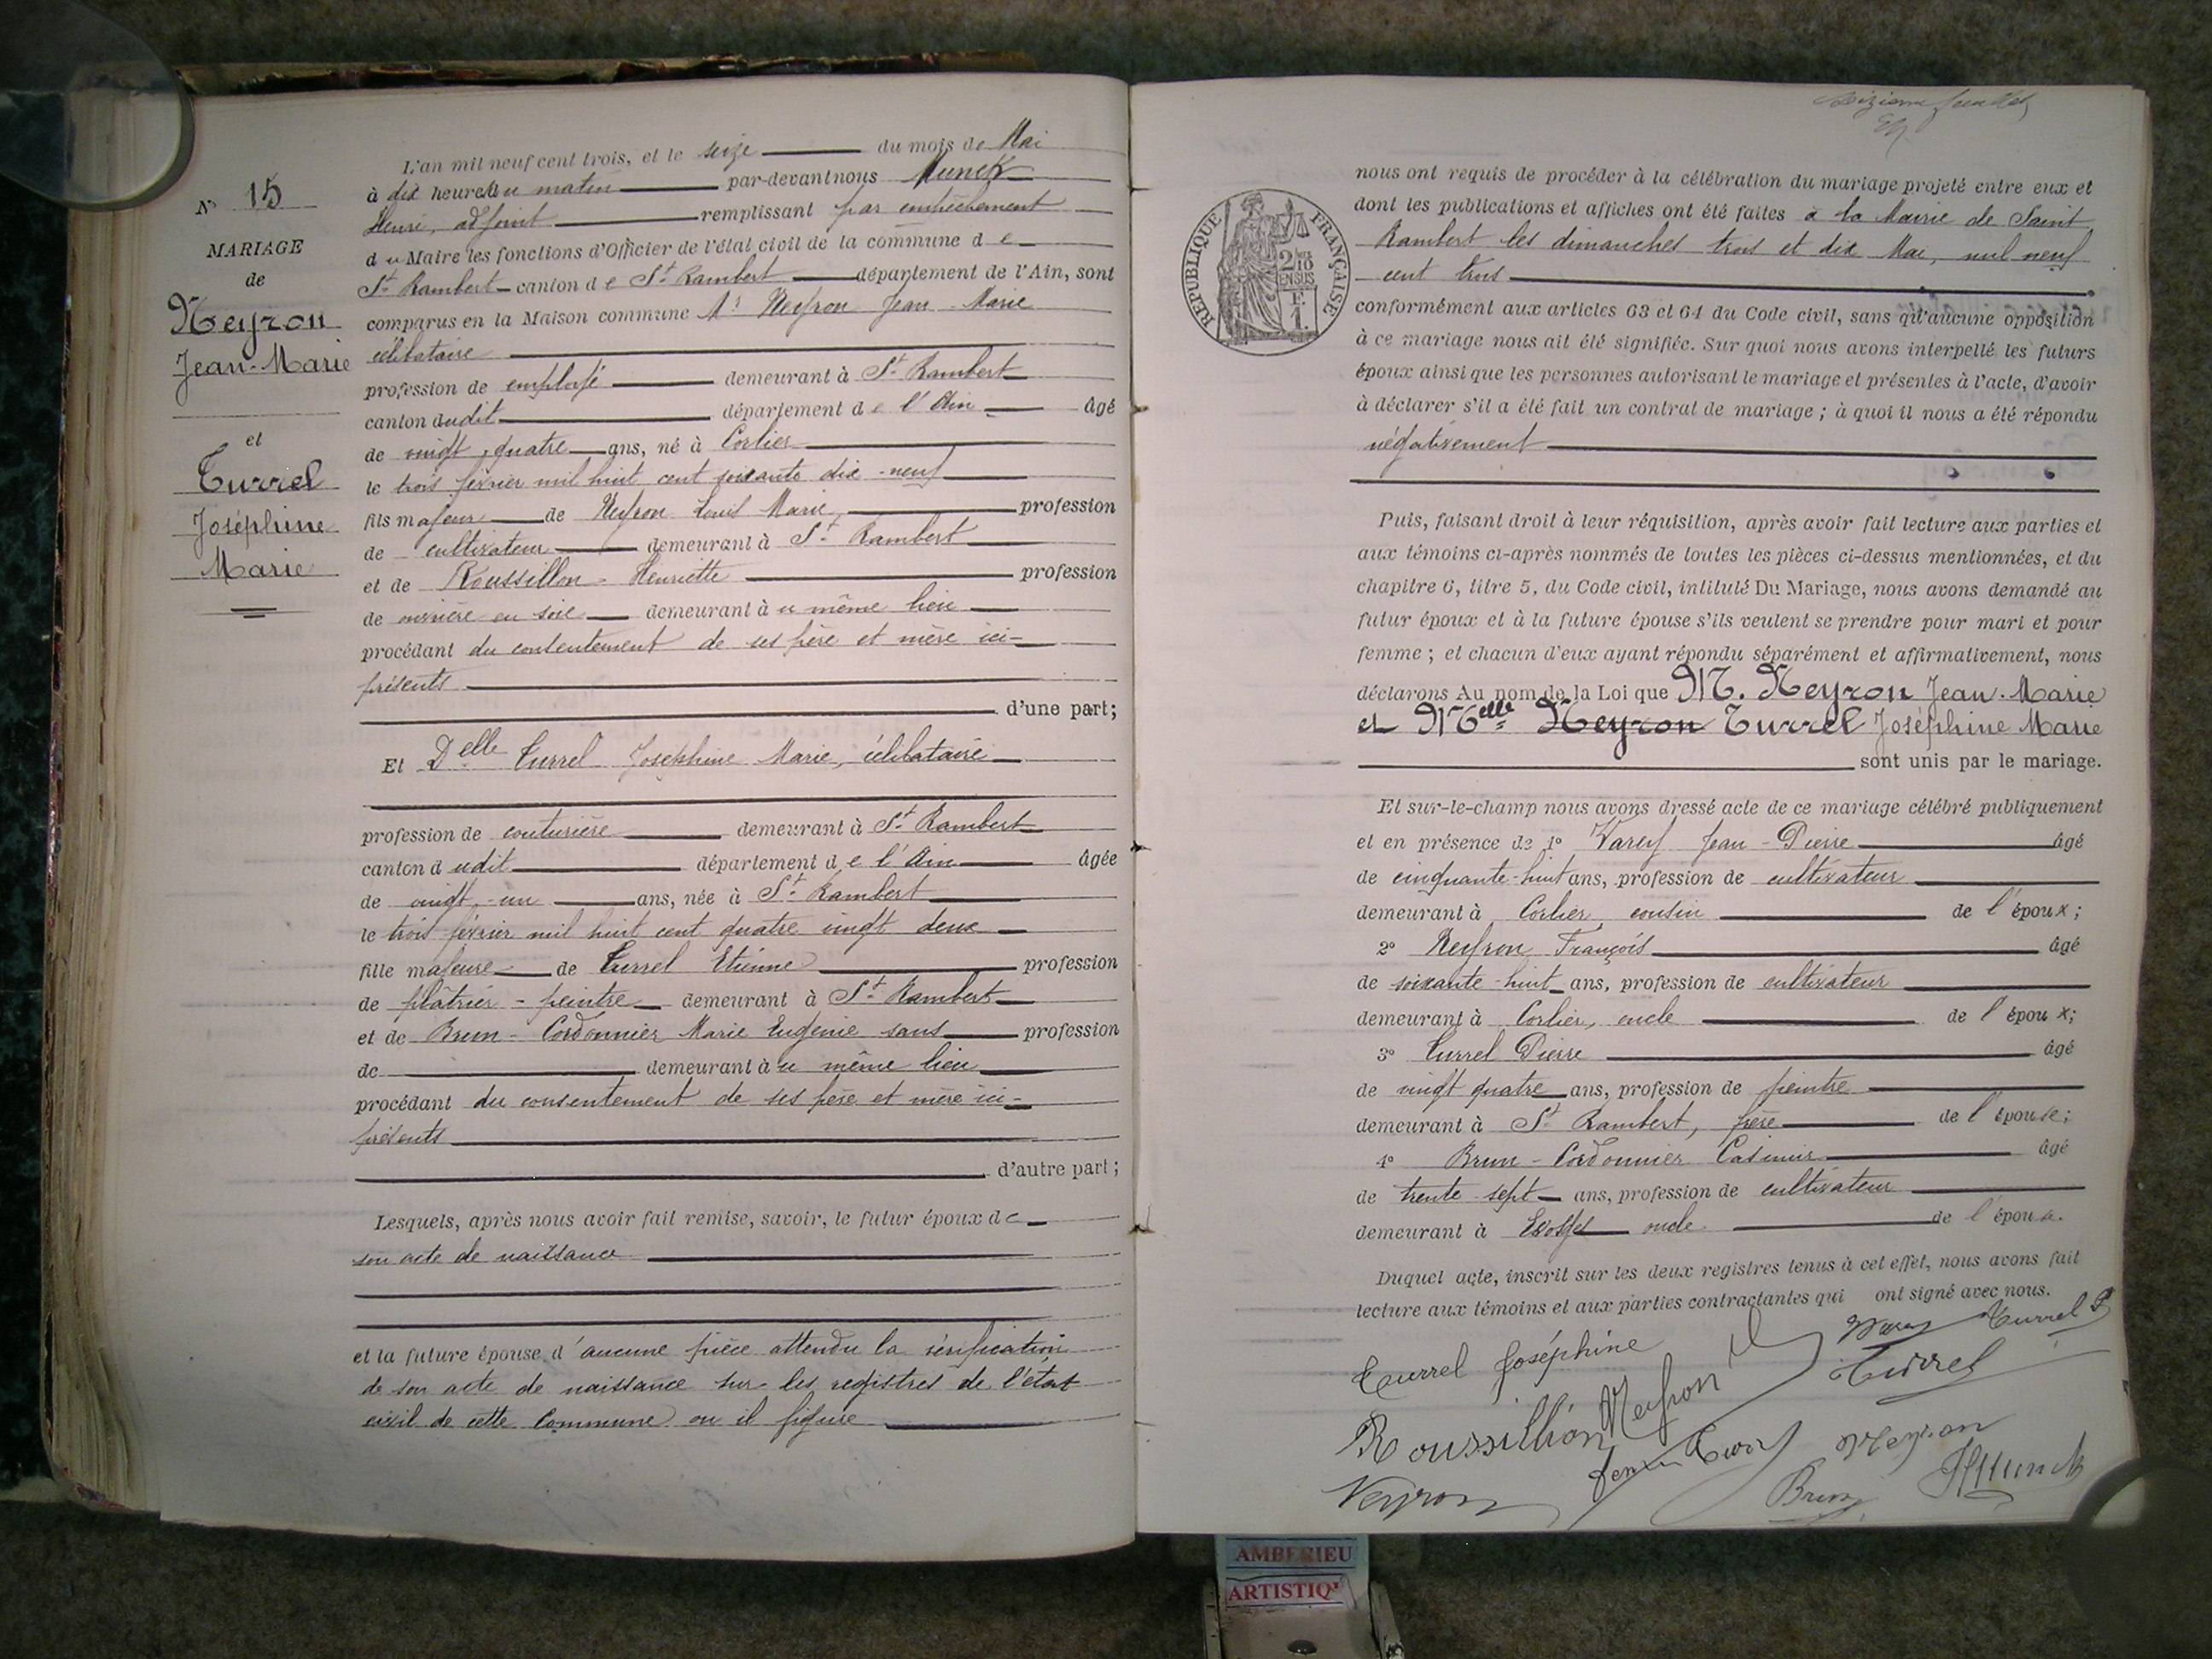 L'an mil neuf cent trois, et le seize du mois de Mai
à dix heures du matin par-devant nous Munck
Henri, adjoint remplissant par empêchement
du Maire les fonctions d'Officier de l'état civil de la commune de
St Rambert canton de St Rambert département de l'Ain, sont
comparus en la Maison commune Mr Neyron Jean Marie
célibataire
profession de employé demeurant à St Rambert
canton dudit département de l'Ain âgé
de vingt quatre ans, né à Corlier
le trois février mil huit cent soixante dix-neuf
fils majeur de Neyron Louis Marie, profession
de cultivateur demeurant à St Rambert
et de Roussillon Henriette profession
de ouvrière en soie demeurant au même lieu
procédant du contentement de ses père et mère ici-
présents
d'une part;
Et Delle Turrel Joséphine Marie, célibataire
profession de couturière demeurant à St Rambert
canton dudit département de l'Ain âgée
de vingt-un ans, née à St Rambert
le trois février mil huit cent quatre vingt deux
fille majeure de Turrel Etienne profession
de plâtrier-peintre demeurant à St Rambert
et de Brun-Cordonnier Marie Eugénie sans profession
de demeurant au même lieu
procédant du consentement de ses père et mère ici-
présents
d'autre part;
Lesquels, après nous avoir fait remise, savoir, le futur époux de
son acte de naissance
et la future épouse d'aucune pièce attendu la vérification
de son acte de naissance sur les registres de l'état
civil de cette Commune ou il figure
No 15
MARIAGE
de
Neyron
Jean-Marie
et
Turrel
Joséphine
Marie
nous ont requis de procéder à la célébration du mariage projeté entre eux et
dont les publications et affiches ont été faites à la Mairie de Saint
Rambert les dimanches trois et dix Mai, mil neuf
cent trois
RÉPUBLIQUE FRANÇAISE
2/10 EN SUS
F.
1.
conformément aux articles 63 et 64 du Code civil, sans qu'aucune opposition
à ce mariage nous ait été signifiée. Sur quoi nous avons interpellé les futurs
époux ainsi que les personnes autorisant le mariage et présentes à l'acte, d'avoir
à déclarer s'il a été fait un contrat de mariage; à quoi il nous a été répondu
négativement
Puis, faisant droit à leur réquisition, après avoir fait lecture aux parties et
aux témoins ci-après nommés de toutes les pièces ci-dessus mentionnées, et du
chapitre 6, titre 5, du Code civil, intitulé Du Mariage, nous avons demandé au
futur époux et à la future épouse s'ils veulent se prendre pour mari et pour
femme; et chacun d'eux ayant répondu séparément et affirmativement, nous
déclarons Au nom de la Loi que M. Neyron Jean-Marie
et Melle Neyron Turrel Joséphine Marie
sont unis par le mariage.
Et sur-le-champ nous avons dressé acte de ce mariage célébré publiquement
et en présence de 1o Varey Jean-Pierre âgé
de cinquante-huit ans, profession de cultivateur
demeurant à Corlier cousin de l'époux;
2o Neyron François âgé
de soixante-huit ans, profession de cultivateur
demeurant à Corlier, oncle de l'époux;
3o Turrel Pierre âgé
de vingt quatre ans, profession de peintre
demeurant à St Rambert, frère de l'épouse;
4o Brun-Cordonnier Casimir âgé
de trente sept ans, profession de cultivateur
demeurant à oncle de l'épouse.
Duquel acte, inscrit sur les deux registres tenus à cet effet, nous avons fait
lecture aux témoins et aux parties contractantes qui ont signé avec nous.
Turrel Joséphine Turrel P
Turrel
Roussillion Neyron
Neyron
Neyron Brun HMunck
AMBERIEU
ARTISTIQ'